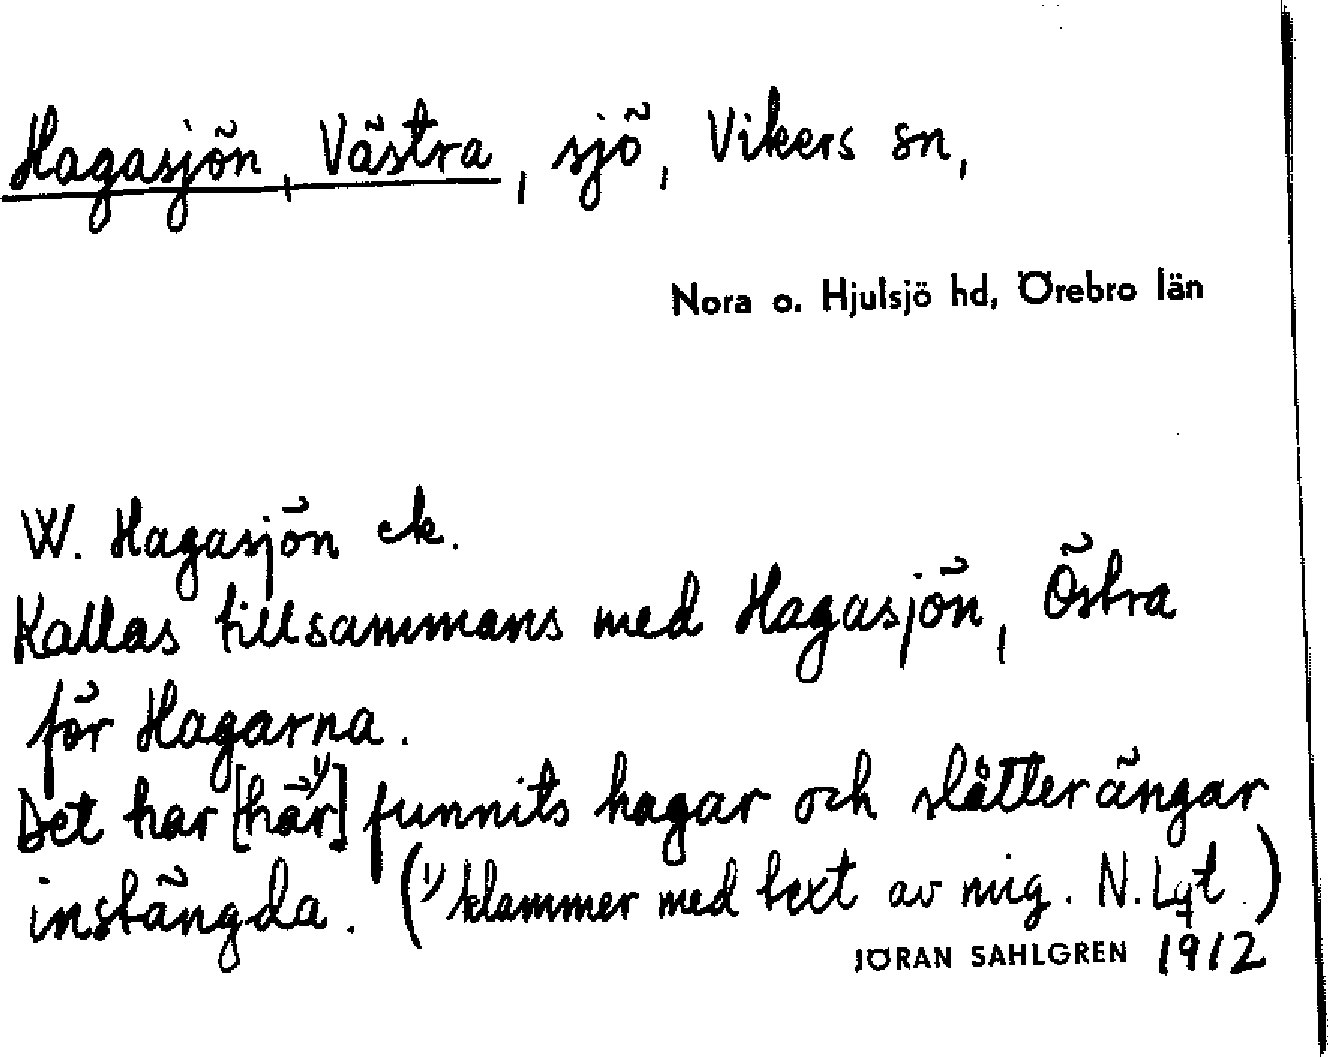 Hagasjön, Västra, sjö, Vikers sn,
Nora o. Hjulsjö hd, Örebro län
W. Hagasjön ek.
Kallas tillsammans med Hagasjön, Östra
för Hagarna.
Det har [här¹⁾] funnits hagar och slåtterängar
instängda. (¹⁾klammer med text av mig. N. Lqt.)
JÖRAN SAHLGREN 1912